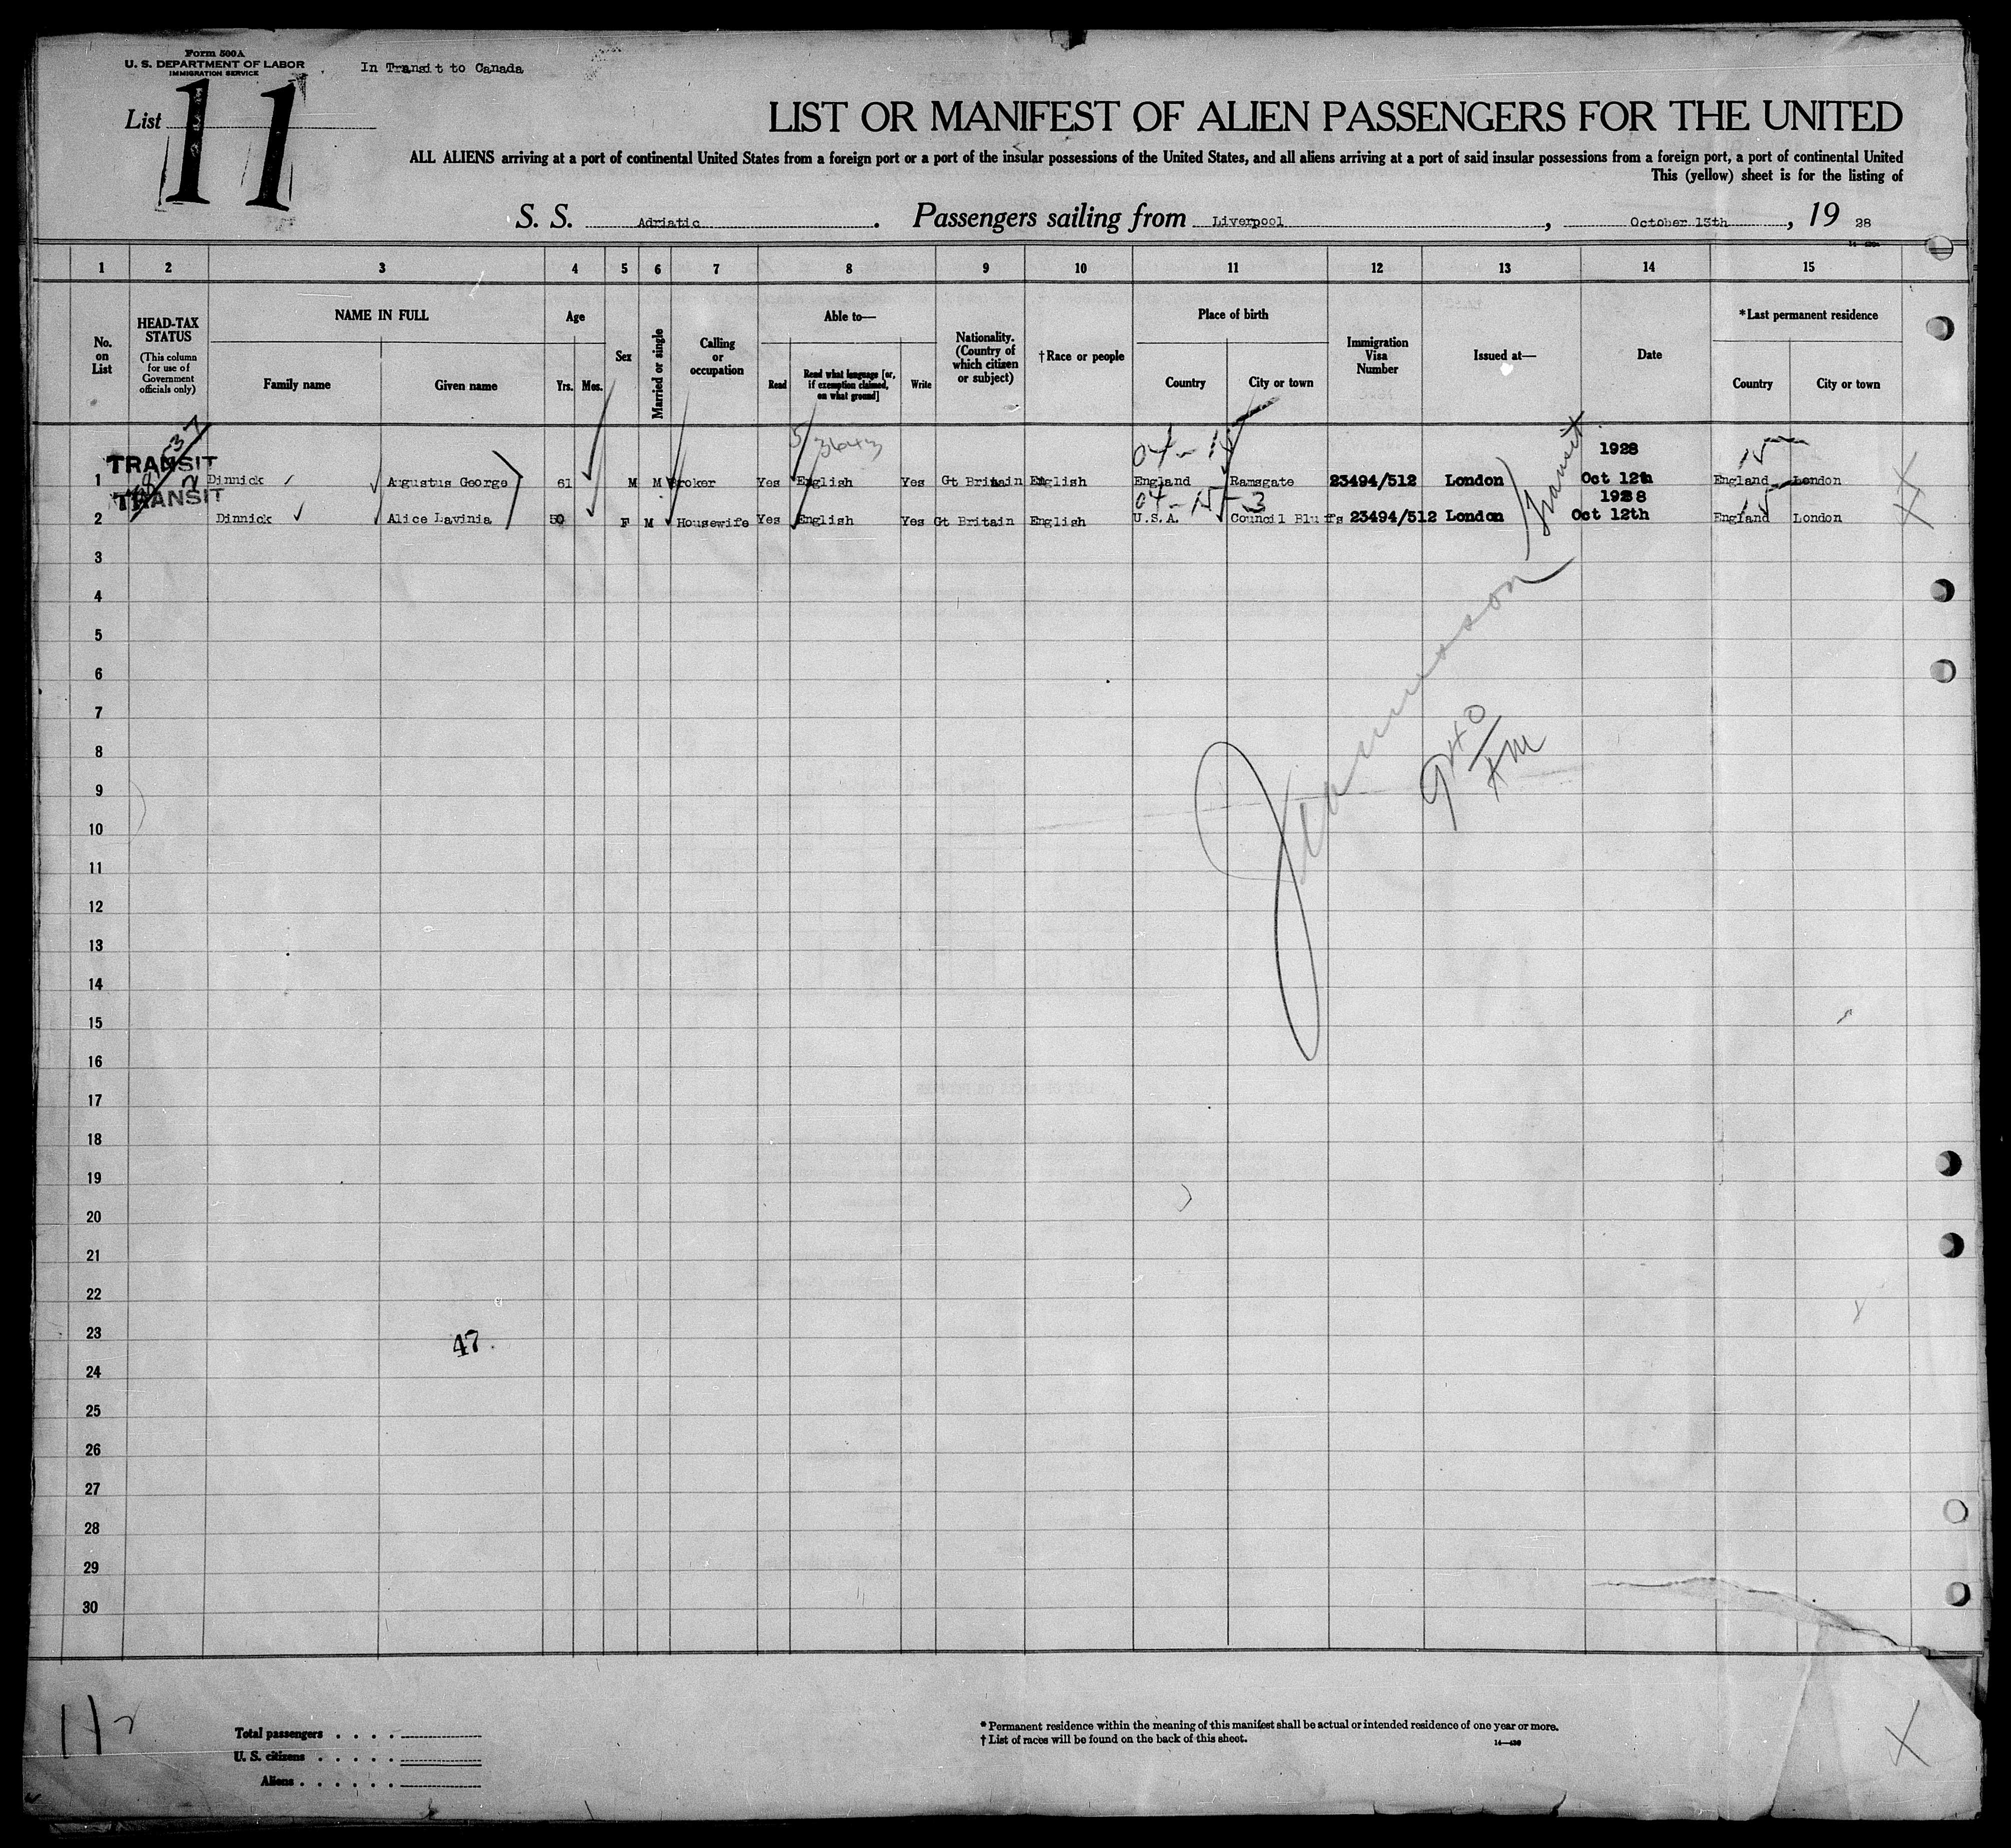 Form 500A
U. S. DEPARTMENT OF LABOR
IMMIGRATION SERVICE
In Transit to Canada
List 11
LIST OR MANIFEST OF ALIEN PASSENGERS FOR THE UNITED
ALL ALIENS arriving at a port of continental United States from a foreign port or a port of the insular possessions of the United States, and all aliens arriving at a port of said insular possessions from a foreign port, a port of continental United
This (yellow) sheet is for the listing of
S. S. Adriatic. Passengers sailing from Liverpool, October 13th, 19 28
1 2 3 4 5 6 7 8 9 10 11 12 13 14 15
No. on List
HEAD-TAX STATUS
(This column for use of Government officials only)
NAME IN FULL
Family name Given name
Age
Yrs. Mos.
Sex
Married or single
Calling or occupation
Able to—
Read Read what language [or, if exemption claimed, on what ground] Write
Nationality. (Country of which citizen or subject)
†Race or people
Place of birth
Country City or town
Immigration Visa Number
Issued at—
Date
*Last permanent residence
Country City or town
5/3643
04-14
1928
15
TRANSIT
1 Dinnick Augustus George 61 M M Broker Yes English Yes Gt Britain English England Ramsgate 23494/512 London Transit Oct 12th England London
04-15-3
1928
15
TRANSIT
2 Dinnick Alice Lavinia 50 F M Housewife Yes English Yes Gt Britain English U.S.A. Council Bluffs 23494/512 London Oct 12th England London
3
4
5
6
7
8
9
10
11
12
13
14
15
16
17
18
19
20
21
22
23
47.
24
25
26
27
28
29
30
Total passengers . . . .
U. S. citizens . . . . .
Aliens . . . . . .
* Permanent residence within the meaning of this manifest shall be actual or intended residence of one year or more.
† List of races will be found on the back of this sheet.
14—430